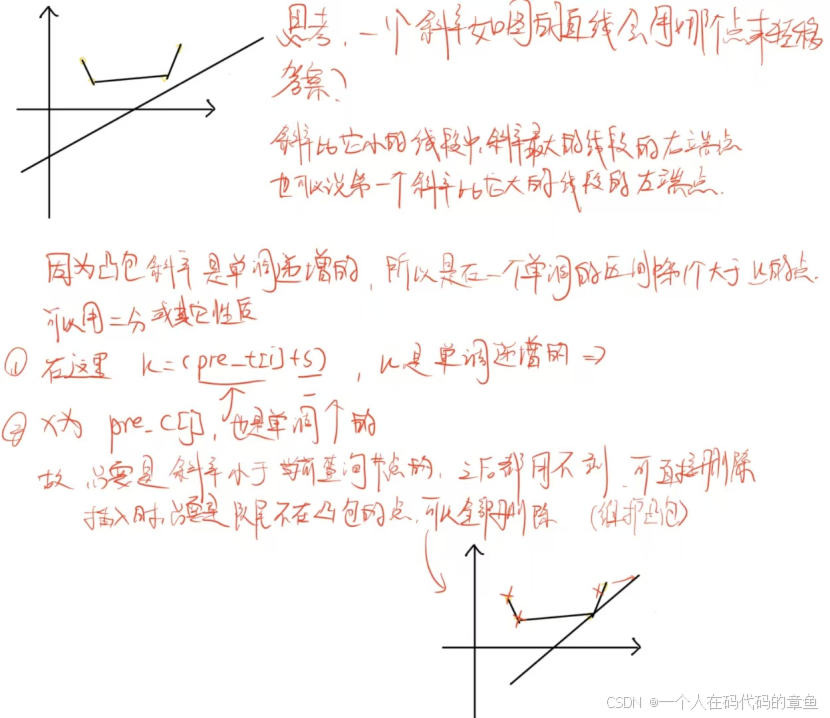 思考, 一个斜率如图的直线会用哪个点来转移
答案?
斜率比它小的线段中,斜率最大的线段的右端点
也可以说第一个斜率比它大的线段的左端点.
因为凸包斜率是单调递增的, 所以是在一个单调的区间中第1个大于 k的点.
可以用二分或其它性质
① 在这里 k=(pre_t[i]+s), k是单调递增的 ⇒
② x为 pre_c[j], 也是单调↑的
故 只要是斜率小于当前查询节点的, 之后都用不到, 可直接删除
插入时,只要是队尾不在凸包的点,可以全部删除 (维护凸包)
CSDN @一个人在码代码的章鱼